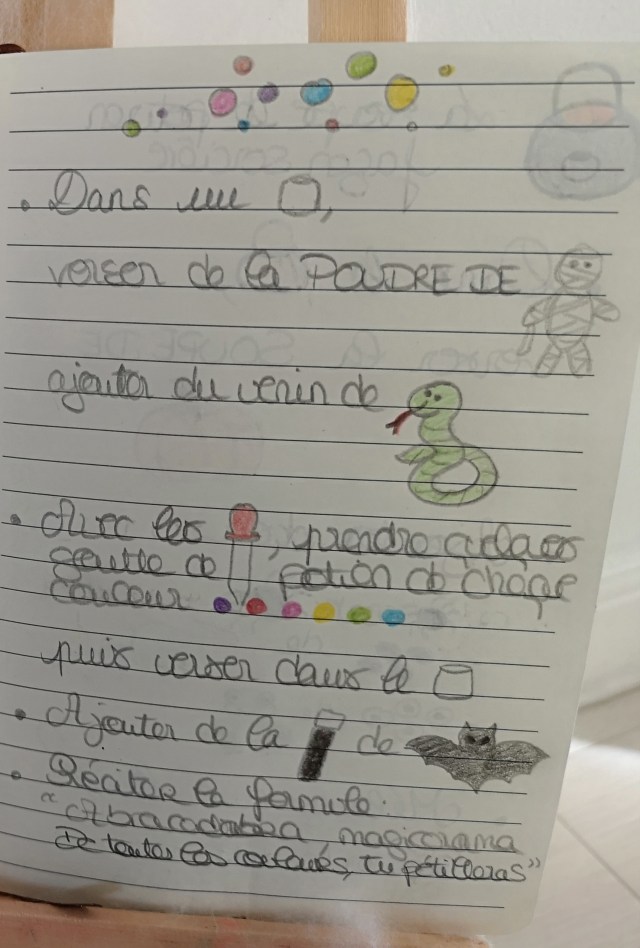 • Dans un ,
verser de la POUDRE DE
ajouter du venin de
• Avec les , prendre qlques
goutte de potion de chaqe
couleur
puis verser dans le
• Ajouter de la de
• Réciter la formule:
"Abracadabra magicorama
De toutes les couleurs, tu pétilleras"